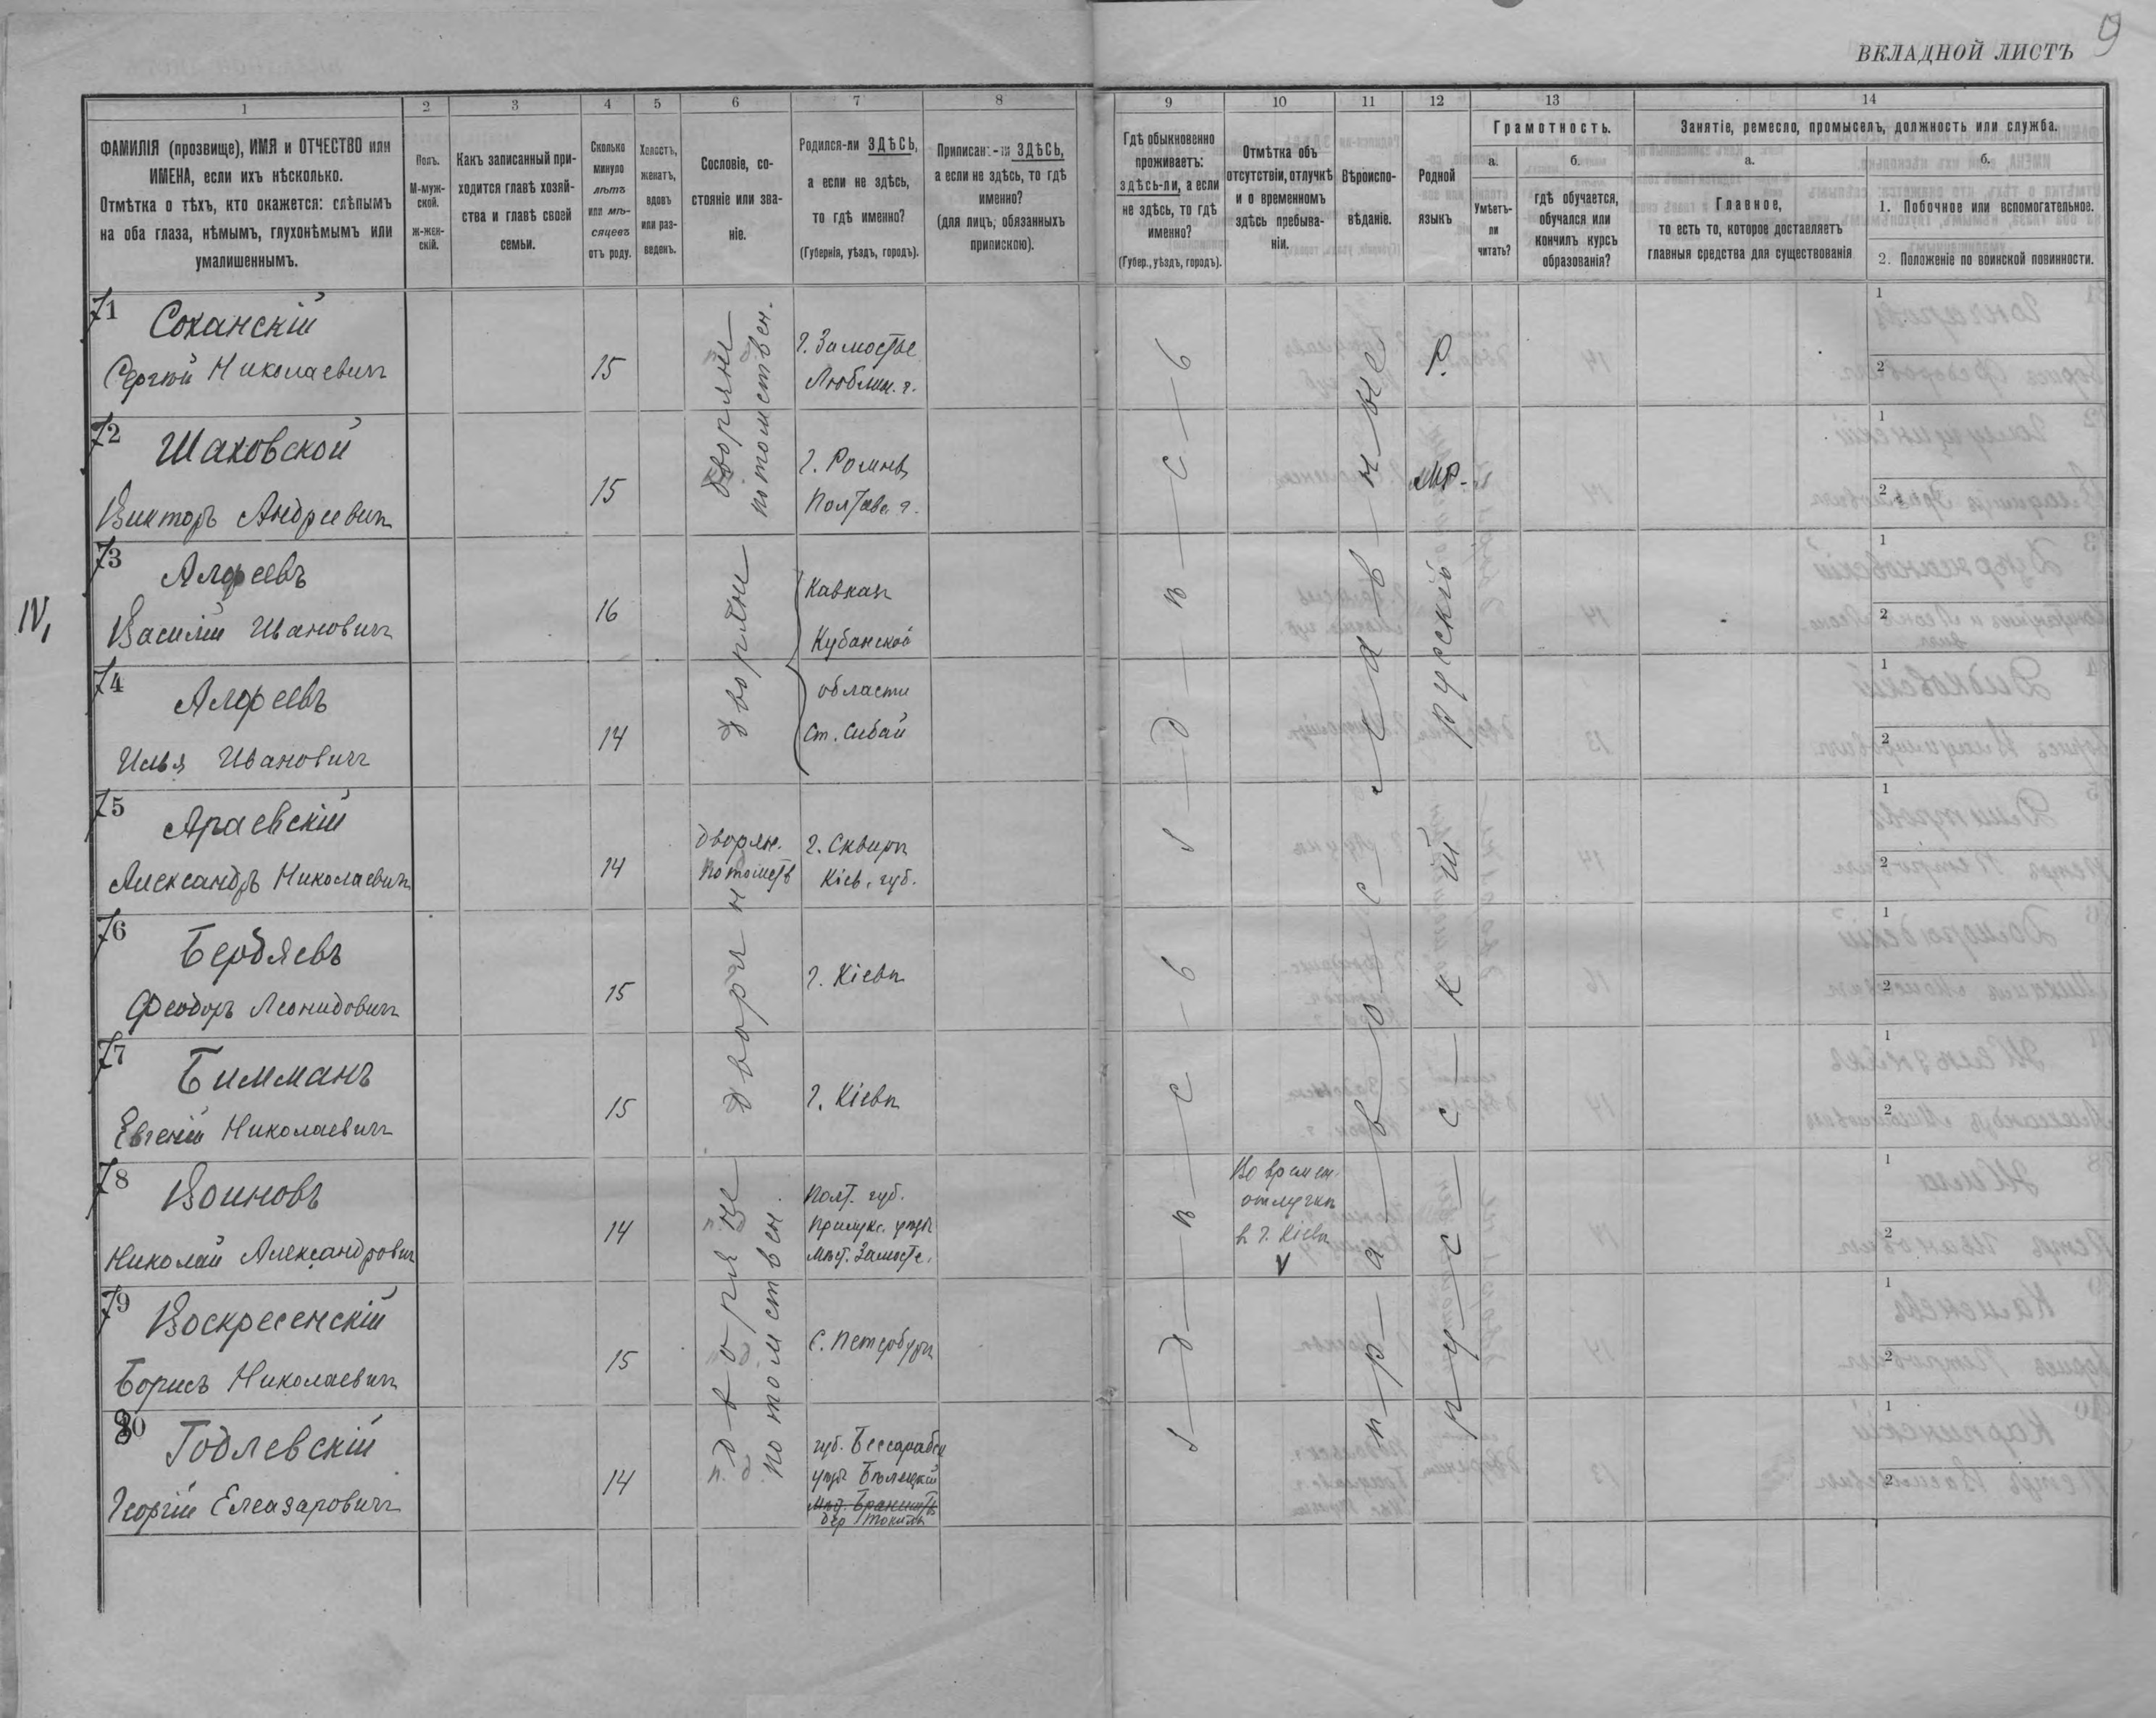 9
ВКЛАДНОЙ ЛИСТЪ
1
2
3
4
5
6
7
8
9
10
11
12
13
14
ФАМИЛІЯ (прозвище), ИМЯ и ОТЧЕСТВО или
ИМЕНА, если ихъ нѣсколько.
Отмѣтка о тѣхъ, кто окажется: слѣпымъ
на оба глаза, нѣмымъ, глухонѣмымъ или
умалишеннымъ.
Полъ.
М-муж-
ской.
Ж-жен-
скій.
Какъ записанный при-
ходится главѣ хозяй-
ства и главѣ своей
семьи.
Сколько
минуло
лѣтъ
или мѣ-
сяцевъ
отъ роду.
Холостъ,
женатъ,
вдовъ
или раз-
веденъ.
Сословіе, со-
стояніе или зва-
ніе.
Родился-ли ЗДѢСЬ,
а если не здѣсь,
то гдѣ именно?
(Губернія, уѣздъ, городъ).
Приписан ЗДѢСЬ,
а если не здѣсь, то гдѣ
именно?
(для лицъ, обязанныхъ
припискою).
Гдѣ обыкновенно
проживаетъ:
здѣсь-ли, а если
не здѣсь, то гдѣ
именно?
(Губер., уѣздъ, городъ).
Отмѣтка объ
отсутствіи, отлучкѣ
и о временномъ
здѣсь пребыва-
ніи.
Вѣроиспо-
вѣданіе.
Родной
языкъ
Грамотность.
а.
б.
Умѣетъ-
ли
читать?
гдѣ обучается,
обучался или
кончилъ курсъ
образованія?
Занятіе, ремесло, промыселъ, должность или служба.
а.
б.
Главное,
то есть то, которое доставляетъ
главныя средства для существованія
1. Побочное или вспомогательное.
2. Положеніе по воинской повинности.
71 Соханскій
Сергѣй Николаевичъ
15
дворяне
потомствен.
г. Замостье
Люблин. г.
72 Шаховской
Викторъ Андреевичъ
15
г. Ромнѣ
Полтав. г.
IV,
73 Алфеевъ
Василій Ивановичъ
16
дворяне
Кавказъ
Кубанской
74 Алфеевъ
Илья Ивановичъ
14
области
75 Араевскій
Александръ Николаевичъ
14
дворян.
потомств
г. Сквиръ
Кіев. губ.
76 Бердяевъ
Феодоръ Леонидовичъ
15
дворян
г. Кіевъ
77 Билманъ
Евгеній Николаевичъ
15
г. Кіевъ
78 Воиновъ
Николай Александрович
14
дворяне
потомствен.
Полт. губ.
Прилукс. уѣзд
Мѣст. Замост.
Во времен.
отлучкѣ
в г. Кіевъ
V
79 Воскресенскій
Борисъ Николаевичъ
15
С. Петербургъ
80 Годлевскій
Георгій Елеазаровичъ
14
губ. Бессарабск
уѣзд Бѣлецкій
здѣсь
здѣсь
православные
Р.
МР.
Русскій
русскій
1
2
1
2
1
2
1
2
1
2
1
2
1
2
1
2
1
2
1
2